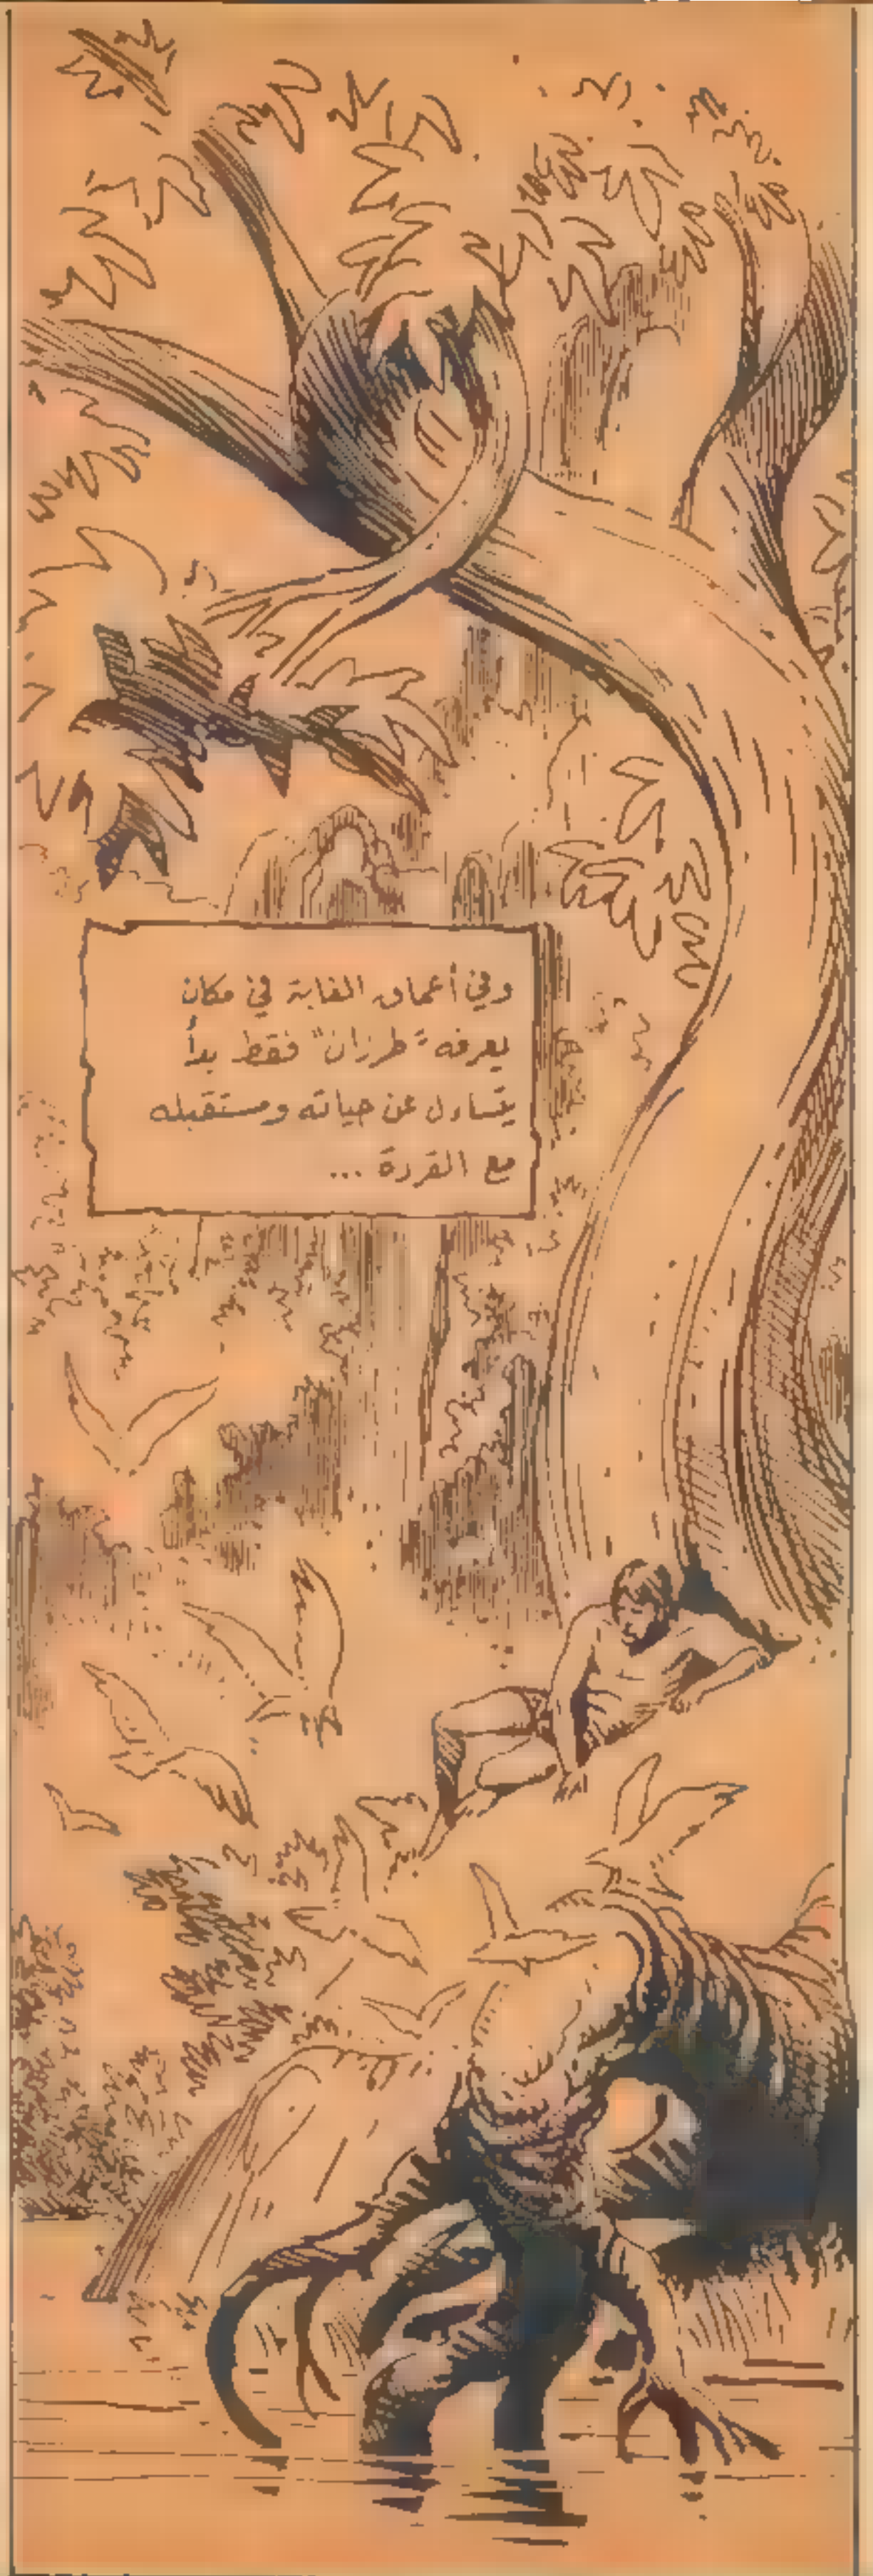 وفي أعماق الغابة في مكان
يعرفه "طرزان" فقط بدأ
يتساءل عن حياته ومستقبله
مع القردة ...